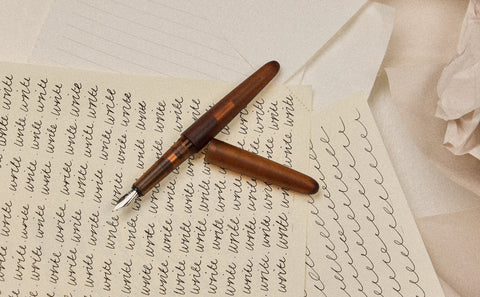 write write write write write write
write write write write write write
write write write write write write
write write write write write write
write write write write write write
write write write write write write
write write write write write write
write write write write write
write write write write write
write write write write write
write write write write write
write write write write
write write write write
write write write write
write write write write
write write write write
write write write